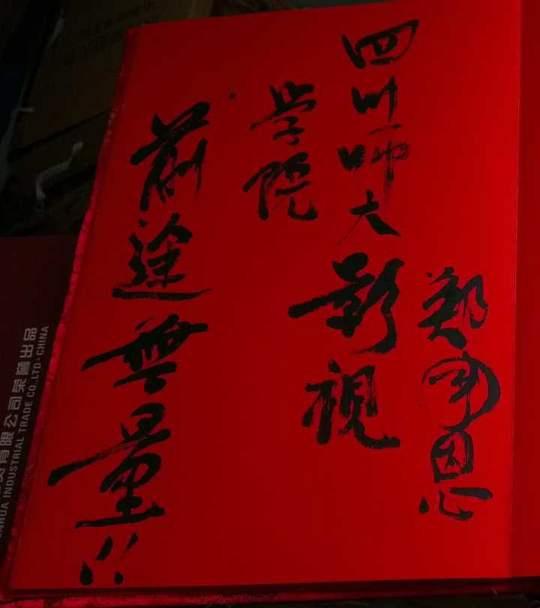 四川师大
影视
学院
前途無量!!
有限公司荣誉出品
INDUSTRIAL TRADE CO.,LTD·CHINA